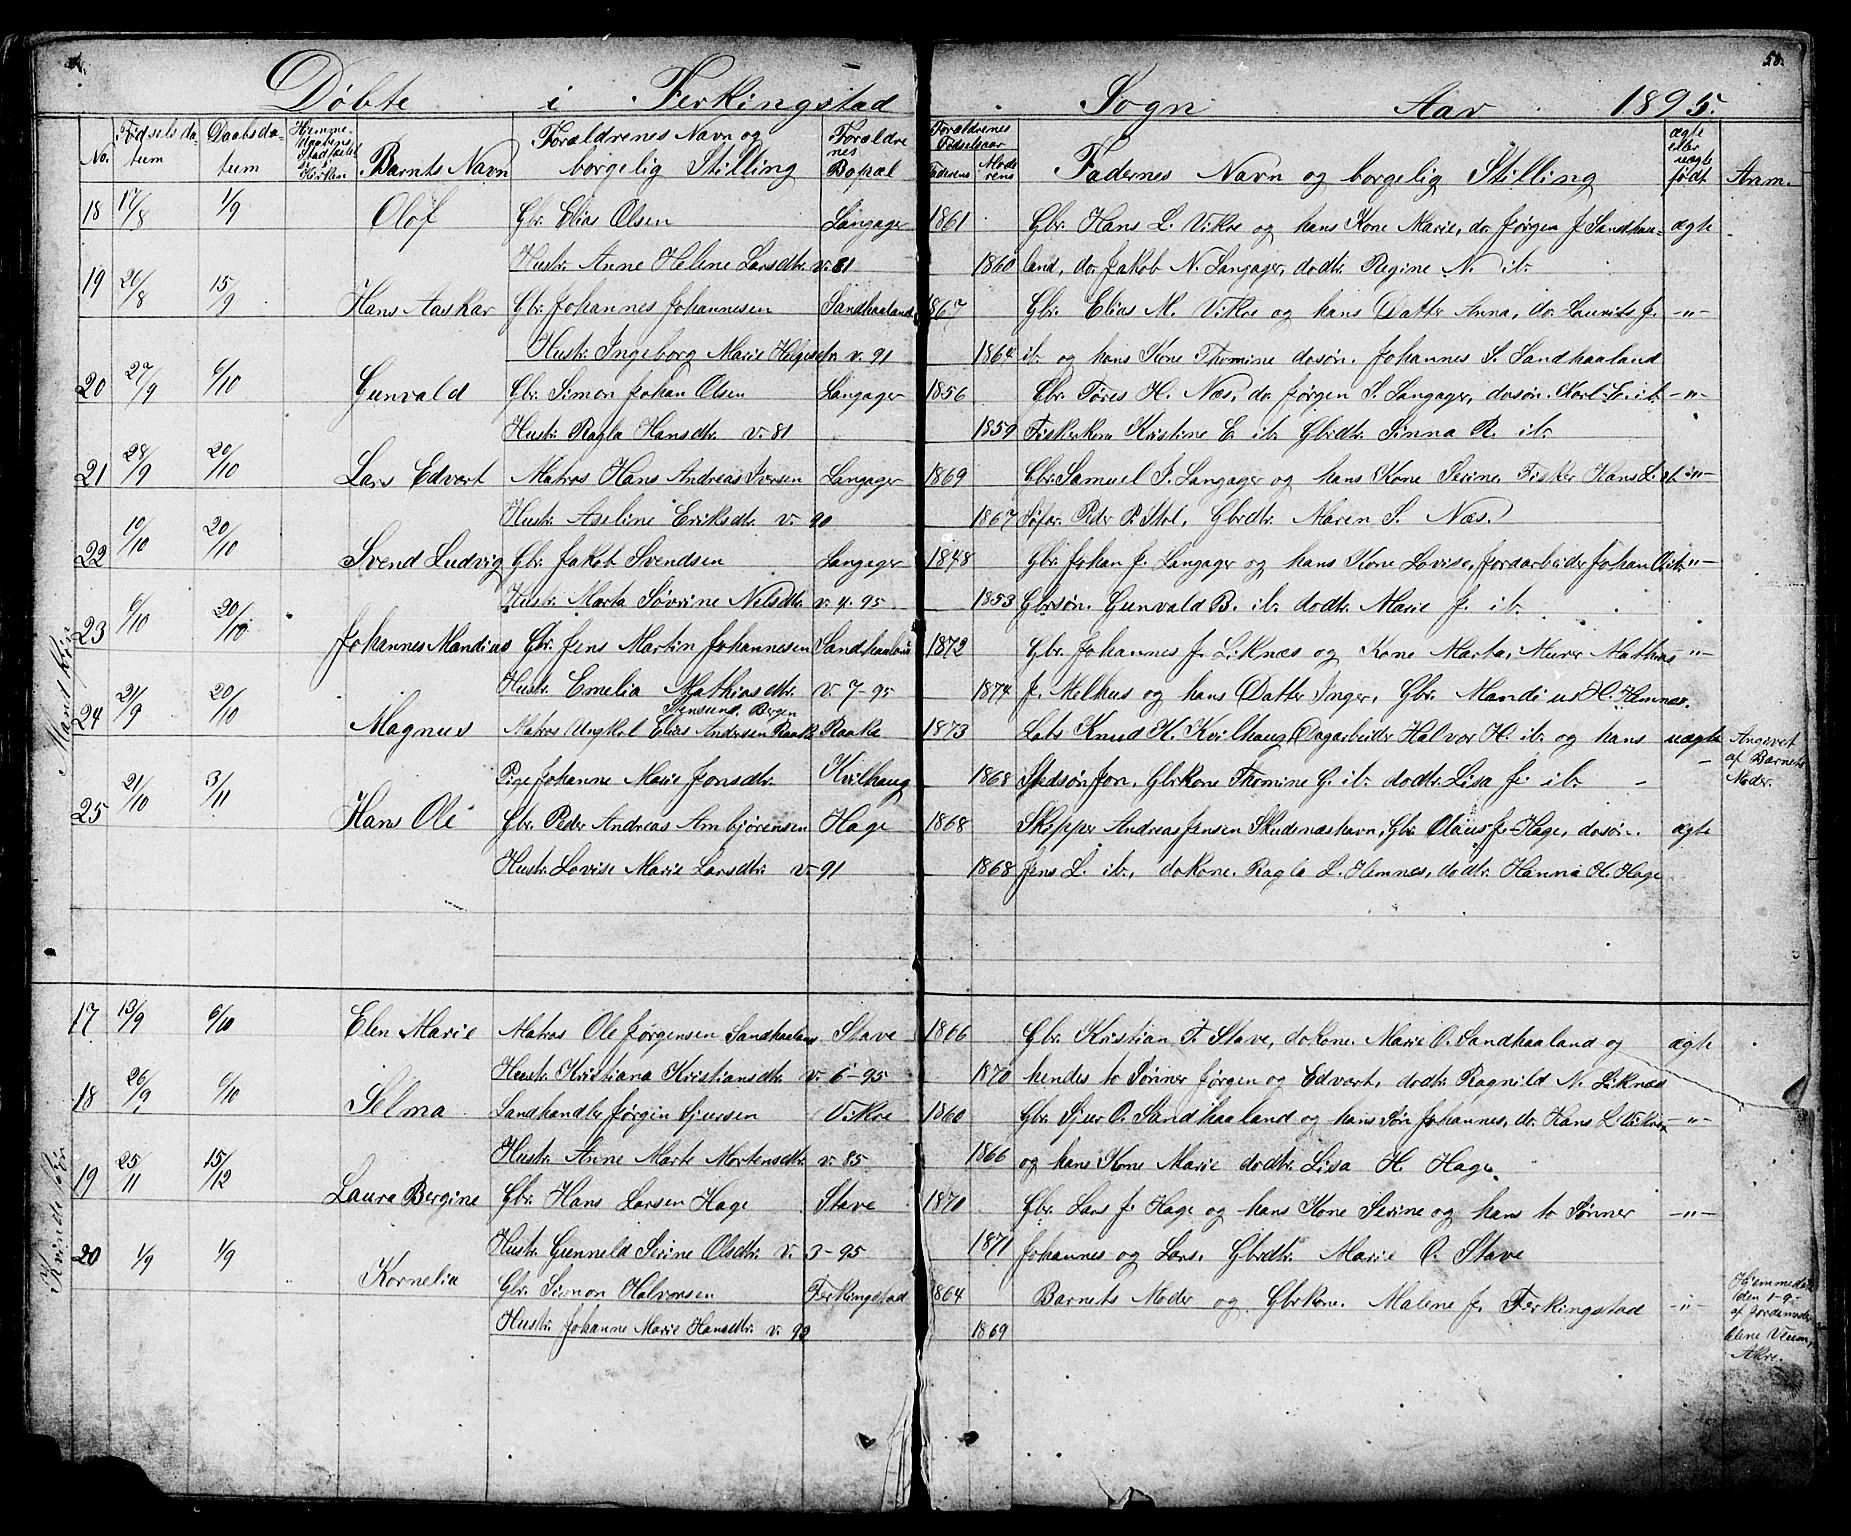 Døbte i Ferkingstad Sogn Aar 1895.
50.
No. Fødselsdatum Daabsdatum Hjemmedaabens Stadfæstelse i Kirken Barnets Navn Forældrenes Navn og borgelig Stilling Forældrenes Bopæl Forældrenes Fødselsaar Faderens Moderens Fadernes Navn og borgelig Stilling ægte eller uægte født Anm.
Mandkjøn
18 17/8 1/9 Olof Gbr. Elias Olsen Langager 1861 Gbr. Hans L. Vikre og hans Kone Marie, do. Jørgen J. Sandhaa- ægte
Hustr. Anne Helene Larsdtr. v. 81 1860 land, do. Jakob N. Langager, dodtr. Regine N. ib.
19 21/8 15/9 Hans Aaskar Gbr. Johannes Johannesen Sandhaaland 1867 Gbr. Elias M. Vikre og hans Datter Anna, do. Laurits J. -"-
Hustr. Ingeborg Marie Helgesdtr v. 91 1864 ib. og hans Kone Thomine dosøn. Johannes S. Sandhaaland
20 27/9 6/10 Gunvald Gbr. Simon Johan Olsen Langager 1856 Gbr. Tøres H. Næs, do. Jørgen S. Langager, dosøn. Karl E. ib. -"-
Hustr. Ragla Hansdtr. v. 81 1859 Fiskerkone Kristine E. ib. Gbrdtr. Sinna R. ib.
21 28/9 20/10 Lars Edvart Matros Hans Andreas Iversen Langager 1869 Gbr. Samuel J. Langager og hans Kone Serine, Fisker Hans L. ib. -"-
Hustr. Aseline Eriksdtr. v. 90 1867 Søfar. Peder P. Stol, Gbrdtr. Maren S. Næs.
22 10/10 20/10 Svend Ludvig Gbr. Jakob Svendsen Langager 1848 Gbr. Johan J. Langager og hans Kone Lovise, Jordarbeider Johan O. ib. -"-
Hustr. Marta Søvrine Nilsdtr. v. 4-95 1853 Gbrsøn. Gunvald B. ib. dodtr. Marie J. ib.
23 6/10 20/10 Johannes Mandius Gbr. Jens Martin Johannesen Sandhaaland 1872 Gbr. Johannes J. Liknæs og Kone Marta, Murer Mathias -"-
Hustr. Emelia Mathiasdtr. v. 7-95 1874 J. Melhus og hans Datter Inger, Gbr. Mandius H. Hemnæs.
Stensund, Bergen
24 21/9 20/10 Magnus Matros Ungkrl. Elias Andersen Raake Raake 1873 Lods Knud H. Kvilhaug, Dagarbeider Halvor H. ib. og hans uægte Angivet
Pige Johanne Marie Jonsdtr. Kvilhaug 1868 Stedsøn Jon, Gbrkone Thomine G. ib. dodtr. Lisa J. ib. - af Barnets Moder.
25 21/10 3/11 Hans Ole Gbr. Peder Andreas Ambjørensen Hage 1868 Skipper Andreas Jensen Skudenæshavn, Gbr. Olaus J. Hage, dosøn. ægte
Hustr. Lovise Marie Larsdtr. v. 91 1868 Jens L. ib., dokone. Ragla L. Hemnæs, dodtr. Hanna H. Hage
Kvindekjøn
17 13/9 6/10 Elen Marie Matros Ole Jørgensen Sandhaaland Stave 1866 Gbr. Kristian T. Stave, dokone. Marie O. Sandhaaland og ægte
Hustr. Kristiana Kristiansdtr. v. 6-95 1870 hendes to Sønner Jørgen og Edvert, dodtr. Ragnild N. Liknæs
18 26/9 6/10 Selma Landhandler Jørgen Sjursen Vikre 1860 Gbr. Sjur O. Sandhaaland og hans Søn Johannes, do. Hans L. Vikre -"-
Hustr. Anne Marte Mortensdtr. v. 85 1866 og hans Kone Marie dodtr. Lisa H. Hage.
19 25/11 15/12 Laura Bergine Gbr. Hans Larsen Hage Stave 1870 Gbr. Lars J. Hage og hans Kone Serine og hans to Sønner -"-
Hustr. Gunneld Serine Olsdtr. v. 3-95 1871 Johannes og Lars. Gbrdtr. Marie O. Stave
20 1/9 1/9 Kornelia Gbr. Simon Halvorsen Ferkingstad 1864 Barnets Moder og Gbrkone. Malene J. Ferkingstad -"- Hjemmedøbt den 1-9- af Jordemoder Elene Veum, Akre.
Hustr. Johanne Marie Hansdtr. v. 92 1869